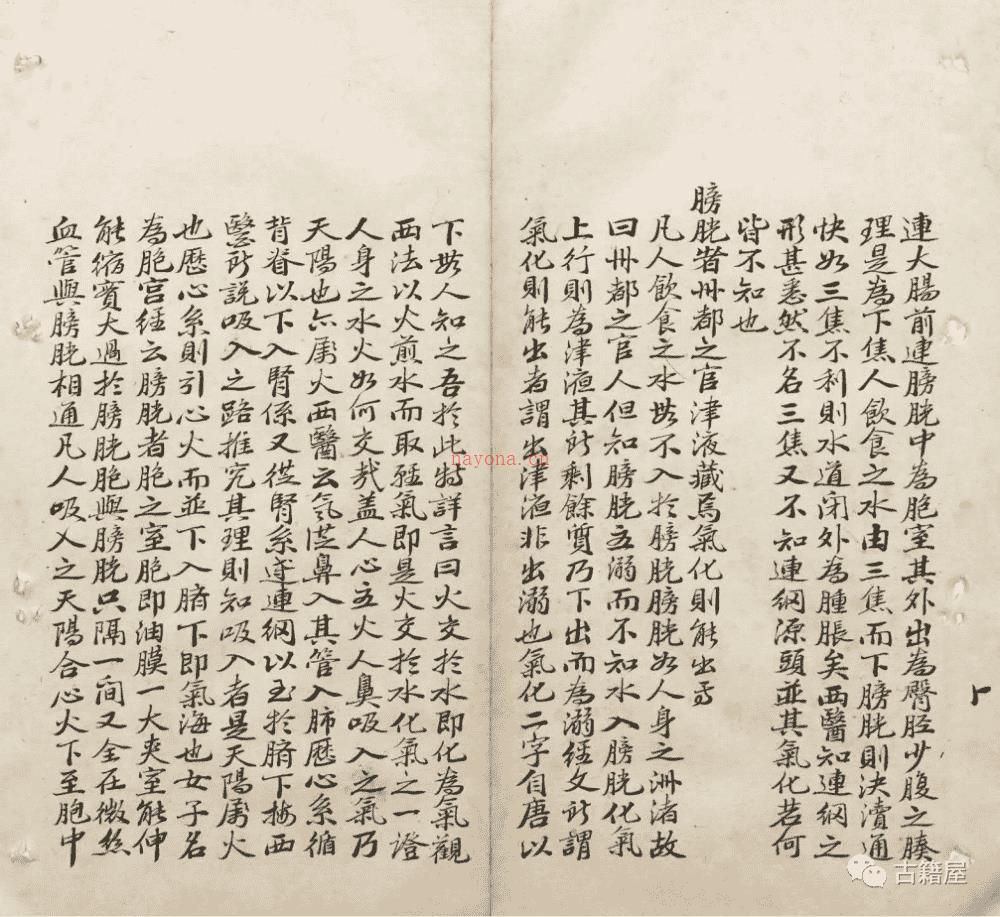 連大腸前連膀胱中為胞室其外出為臀脛少腹之腠
理是為下焦人飲食之水由三焦而下膀胱則決瀆通
快如三焦不利則水道閉外為腫脹矣西醫知連網之
形甚悉然不名三焦又不知連網源頭並其氣化若何
皆不知也
膀胱者州都之官津液藏焉氣化則能出焉
凡人飲食之水無不入於膀胱膀胱如人身之洲渚故
曰州都之官人但知膀胱主溺而不知水入膀胱化氣
上行則為津液其所剩餘質乃下出而為溺經文所謂
氣化則能出者謂出津液非出溺也氣化二字自唐以
下無人知之吾於此特詳言曰火交於水即化為氣觀
西法以火煎水而取輕氣即是火交於水化氣之一證
人身之水火如何交哉蓋人心主火人鼻吸入之氣乃
天陽也亦屬火西醫云氣從鼻入其管入肺歷心系循
背脊以下入腎係又從腎系連網以至於臍下按西
醫所說吸入之路推究其理則知吸入者是天陽屬火
也歷心系則引心火而並下入臍下即氣海也女子名
為胞宮經云膀胱者胞之室胞即油膜一大夾室能伸
能縮實大過於膀胱胞與膀胱只隔一間又全在微絲
血管與膀胱相通凡人吸入之天陽合心火下至胞中
nayona.cn
古籍屋